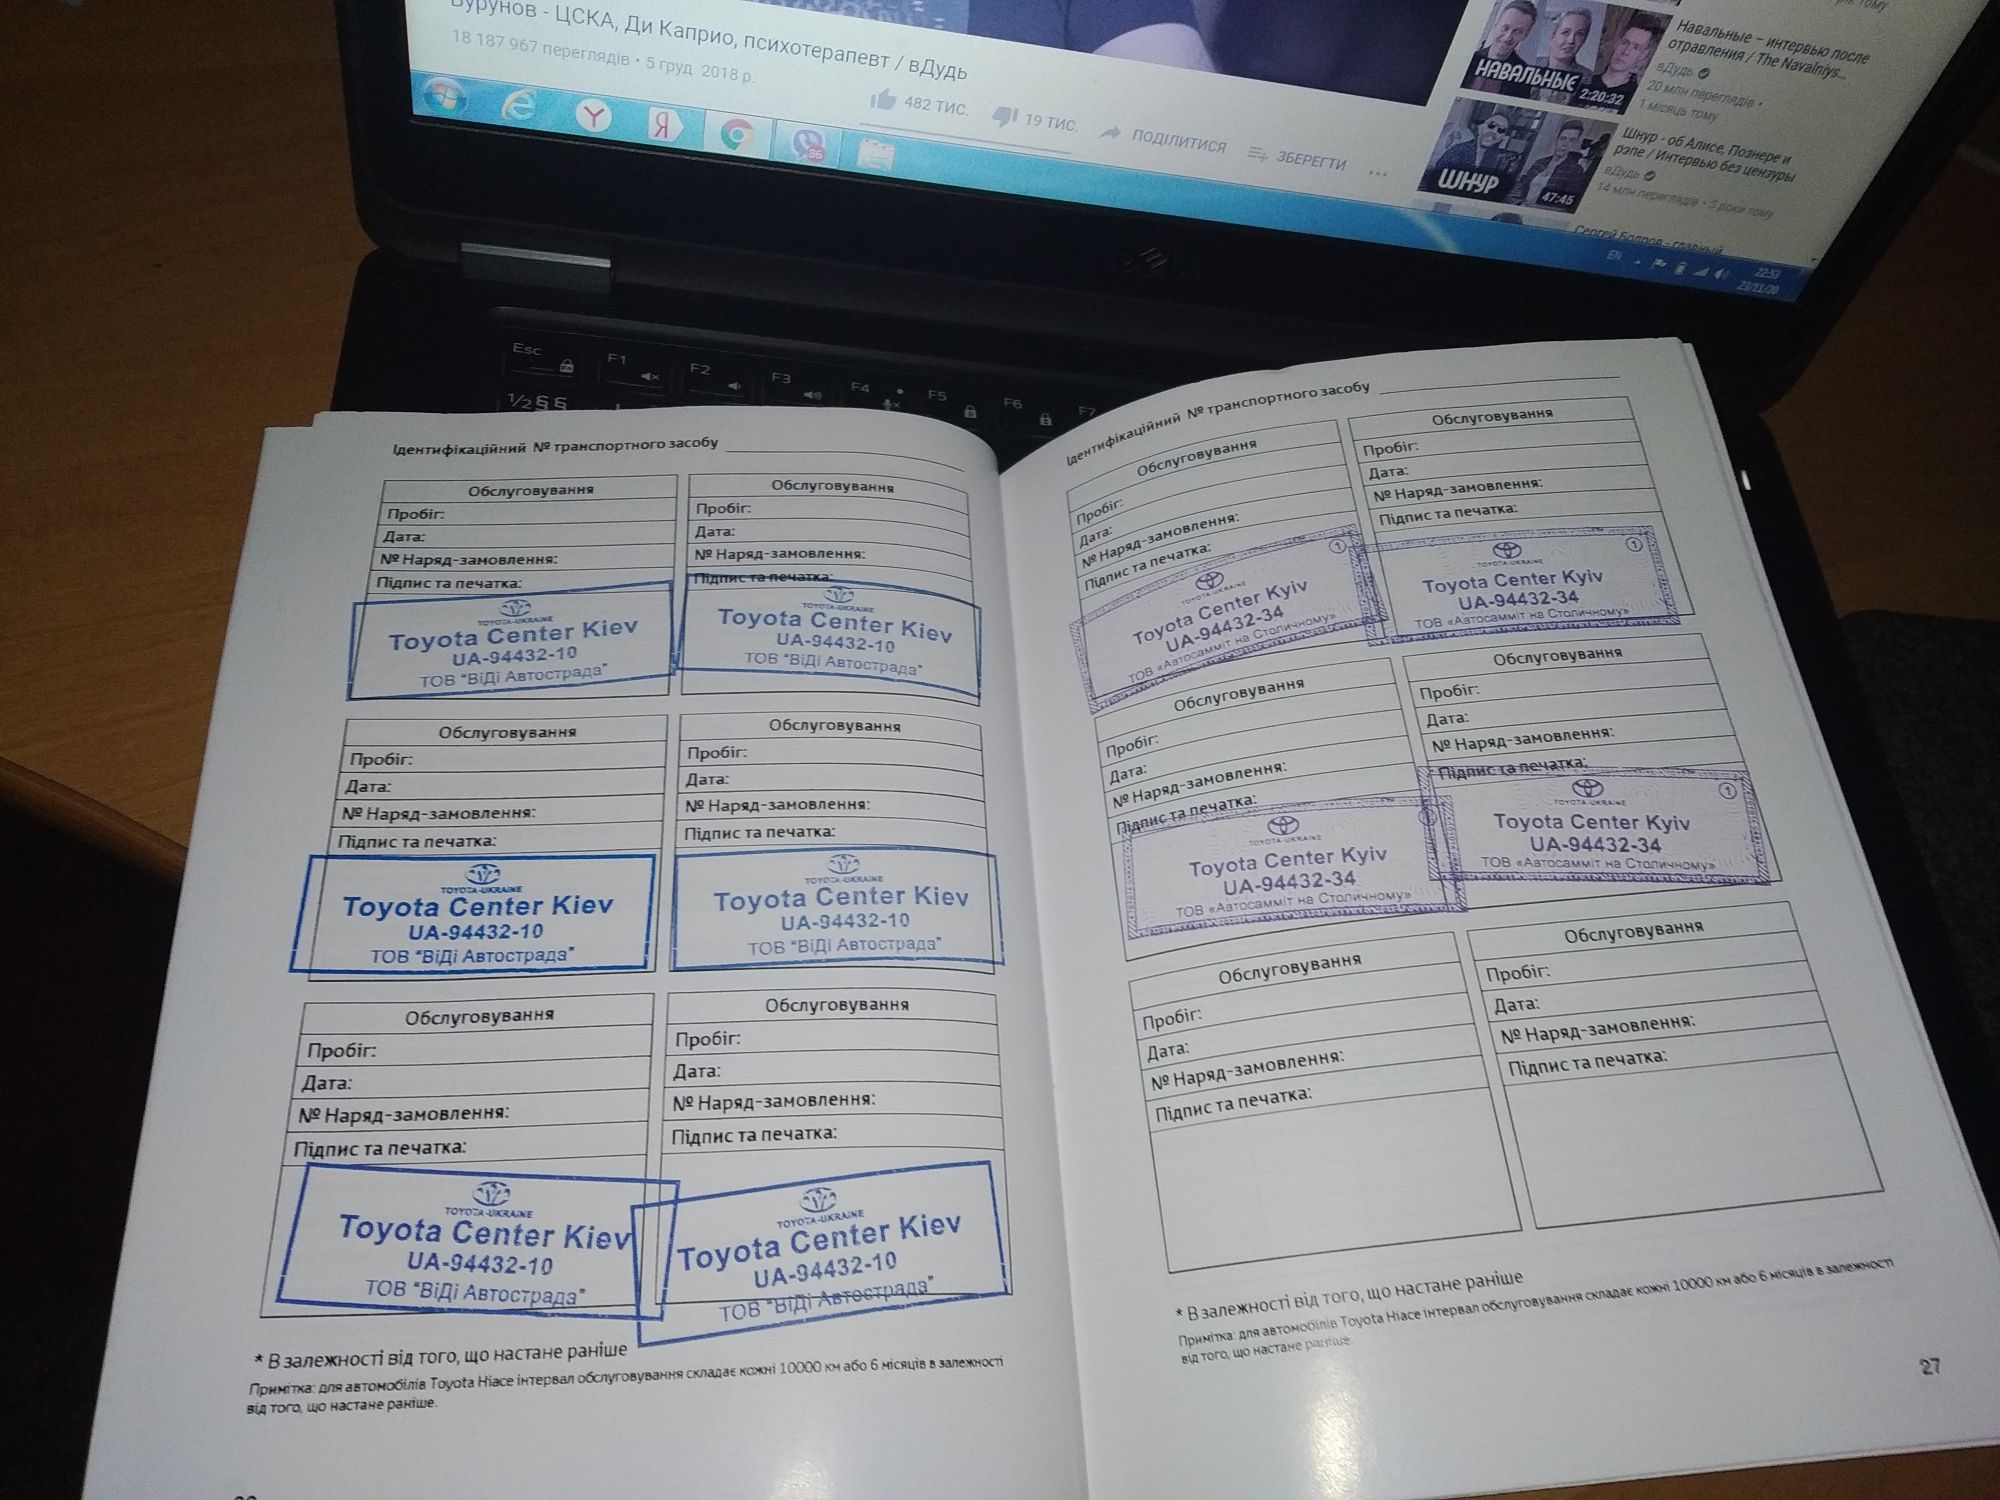 Бурунов - ЦСКА, Ди Каприо, психотерапевт / вДудь
18 187 967 переглядів • 5 груд. 2018 р.
482 ТИС.
19 ТИС.
ПОДІЛИТИСЯ
ЗБЕРЕГТИ
...
НАВАЛЬНЫЕ
2:20:32
Навальные – интервью после
отравления / The Navalniys...
вДудь
20 млн переглядів •
1 місяць тому
ШНУР
47:45
Шнур - об Алисе, Познере и
рэпе / Интервью без цензуры
вДудь
14 млн переглядів • 3 роки тому
Сергей Бодров - главный
86
EN
22:53
23/11/20
Esc
F1
F2
F3
F4
F5
F6
F7
½§§
Ідентифікаційний № транспортного засобу
Обслуговування
Пробіг:
Дата:
№ Наряд-замовлення:
Підпис та печатка:
TOYOTA-UKRAINE
Toyota Center Kiev
UA-94432-10
ТОВ "ВіДі Автострада"
Обслуговування
Пробіг:
Дата:
№ Наряд-замовлення:
Підпис та печатка:
TOYOTA-UKRAINE
Toyota Center Kiev
UA-94432-10
ТОВ "ВіДі Автострада"
Обслуговування
Пробіг:
Дата:
№ Наряд-замовлення:
Підпис та печатка:
TOYOTA-UKRAINE
Toyota Center Kiev
UA-94432-10
ТОВ "ВіДі Автострада"
Обслуговування
Пробіг:
Дата:
№ Наряд-замовлення:
Підпис та печатка:
TOYOTA-UKRAINE
Toyota Center Kiev
UA-94432-10
ТОВ "ВіДі Автострада"
Обслуговування
Пробіг:
Дата:
№ Наряд-замовлення:
Підпис та печатка:
TOYOTA-UKRAINE
Toyota Center Kiev
UA-94432-10
ТОВ "ВіДі Автострада"
Обслуговування
Пробіг:
Дата:
№ Наряд-замовлення:
Підпис та печатка:
TOYOTA-UKRAINE
Toyota Center Kiev
UA-94432-10
ТОВ "ВіДі Автострада"
* В залежності від того, що настане раніше
Примітка: для автомобілів Toyota Hiace інтервал обслуговування складає кожні 10000 км або 6 місяців в залежності
від того, що настане раніше.
Ідентифікаційний № транспортного засобу
Обслуговування
Пробіг:
Дата:
№ Наряд-замовлення:
Підпис та печатка:
1
TOYOTA-UKRAINE
Toyota Center Kyiv
UA-94432-34
ТОВ «Автосамміт на Столичному»
Обслуговування
Пробіг:
Дата:
№ Наряд-замовлення:
Підпис та печатка:
1
TOYOTA-UKRAINE
Toyota Center Kyiv
UA-94432-34
ТОВ «Автосамміт на Столичному»
Обслуговування
Пробіг:
Дата:
№ Наряд-замовлення:
Підпис та печатка:
TOYOTA-UKRAINE
Toyota Center Kyiv
UA-94432-34
ТОВ «Автосамміт на Столичному»
Обслуговування
Пробіг:
Дата:
№ Наряд-замовлення:
Підпис та печатка:
1
TOYOTA-UKRAINE
Toyota Center Kyiv
UA-94432-34
ТОВ «Автосамміт на Столичному»
Обслуговування
Пробіг:
Дата:
№ Наряд-замовлення:
Підпис та печатка:
Обслуговування
Пробіг:
Дата:
№ Наряд-замовлення:
Підпис та печатка:
* В залежності від того, що настане раніше
Примітка: для автомобілів Toyota Hiace інтервал обслуговування складає кожні 10000 км або 6 місяців в залежності
від того, що настане раніше.
27